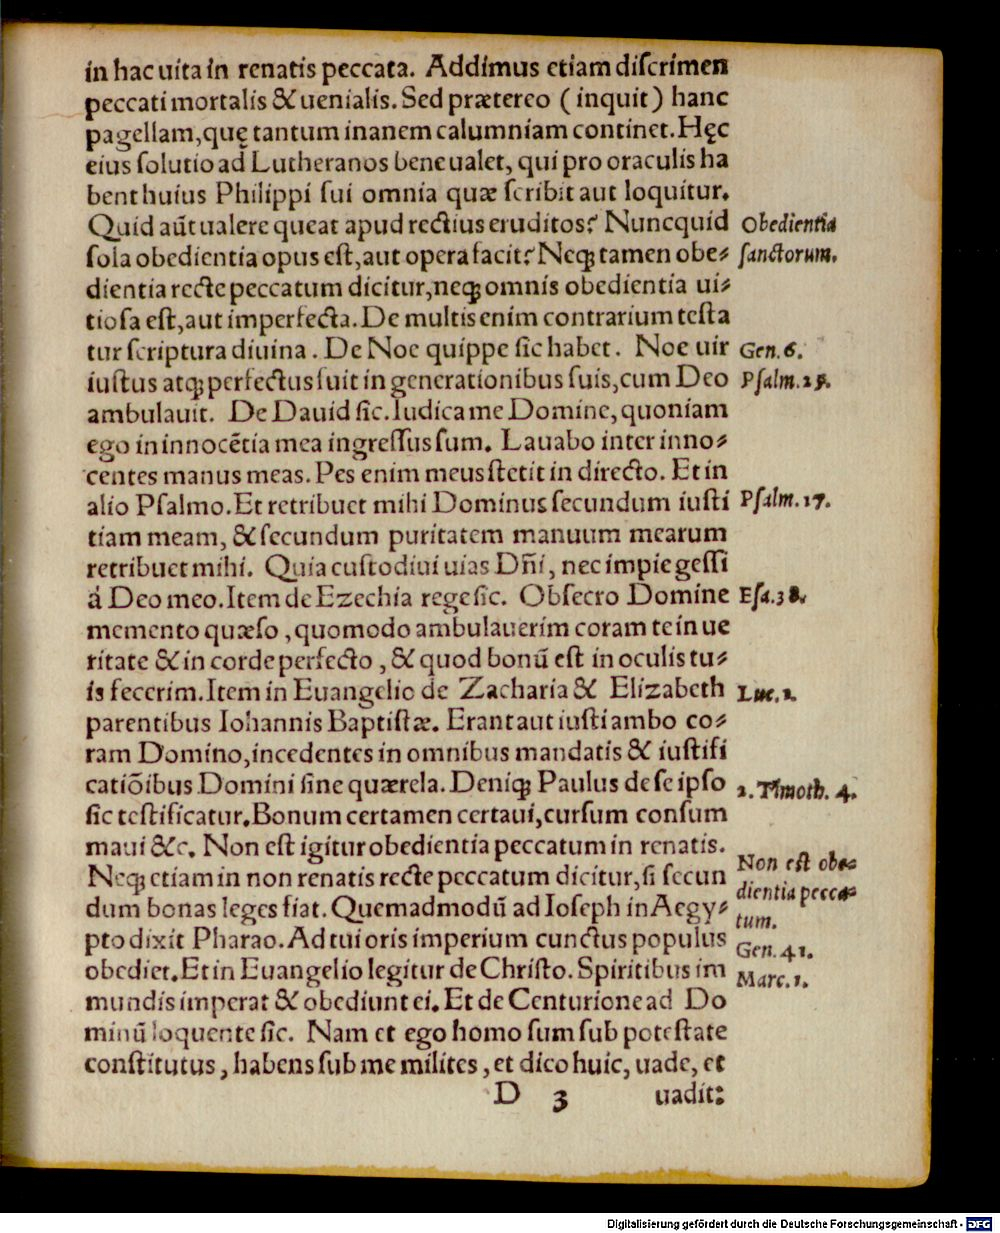 in hac uita in renatis peccata. Addimus etiam discrimen
peccati mortalis & uenialis. Sed prætereo (inquit) hanc
pagellam, quę tantum inanem calumniam continet. Hęc
eius solutio ad Lutheranos bene ualet, qui pro oraculis ha
bent huius Philippi sui omnia quæ scribit aut loquitur.
Quid aūt ualere queat apud rectius eruditos? Nuncquid
sola obedientia opus est, aut opera facit? Neq; tamen obe⸗
dientia recte peccatum dicitur, neq; omnis obedientia ui⸗
tiosa est, aut imperfecta. De multis enim contrarium testa
tur scriptura diuina. De Noe quippe sic habet. Noe uir
iustus atq; perfectus fuit in generationibus suis, cum Deo
ambulauit. De Dauid sic. Iudica me Domine, quoniam
ego in innocētia mea ingressus sum. Lauabo inter inno⸗
centes manus meas. Pes enim meus stetit in directo. Et in
alio Psalmo. Et retribuet mihi Dominus secundum iusti
tiam meam, & secundum puritatem manuum mearum
retribuet mihi. Quia custodiui uias Dñi, nec impie gessi
á Deo meo. Item de Ezechia rege sic. Obsecro Domine
memento quæso, quomodo ambulauerim coram te in ue
ritate & in corde perfecto, & quod bonū est in oculis tu⸗
is fecerim. Item in Euangelio de Zacharia & Elizabeth
parentibus Iohannis Baptistæ. Erant aut iusti ambo co⸗
ram Domino, incedentes in omnibus mandatis & iustifi
catiōibus Domini sine quærela. Deniq; Paulus de se ipso
sic testificatur. Bonum certamen certaui, cursum consum
maui &c. Non est igitur obedientia peccatum in renatis.
Neq; etiam in non renatis recte peccatum dicitur, si secun
dum bonas leges fiat. Quemadmodū ad Ioseph in Aegy⸗
pto dixit Pharao. Ad tui oris imperium cunctus populus
obediet. Et in Euangelio legitur de Christo. Spiritibus im
mundis imperat & obediunt ei. Et de Centurione ad Do
minū loquente sic. Nam et ego homo sum sub potestate
constitutus, habens sub me milites, et dico huic, uade, et
D 3 uadit:
Obedientia
sanctorum.
Gen. 6.
Psalm. 25.
Psalm. 17.
Esa. 38.
Luc. 1.
2. Timoth. 4.
Non est obe⸗
dientia pecca⸗
tum.
Gen. 41.
Marc. 1.
Digitalisierung gefördert durch die Deutsche Forschungsgemeinschaft - DFG